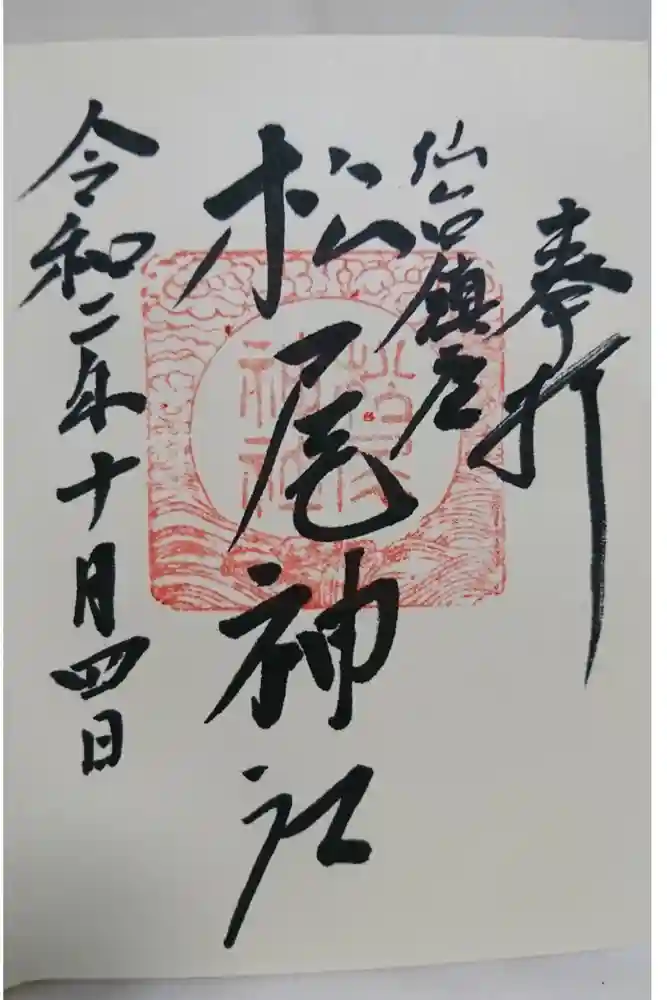 奉拝
仙台鎮座
松尾神社
令和二年十月四日
松尾
神社